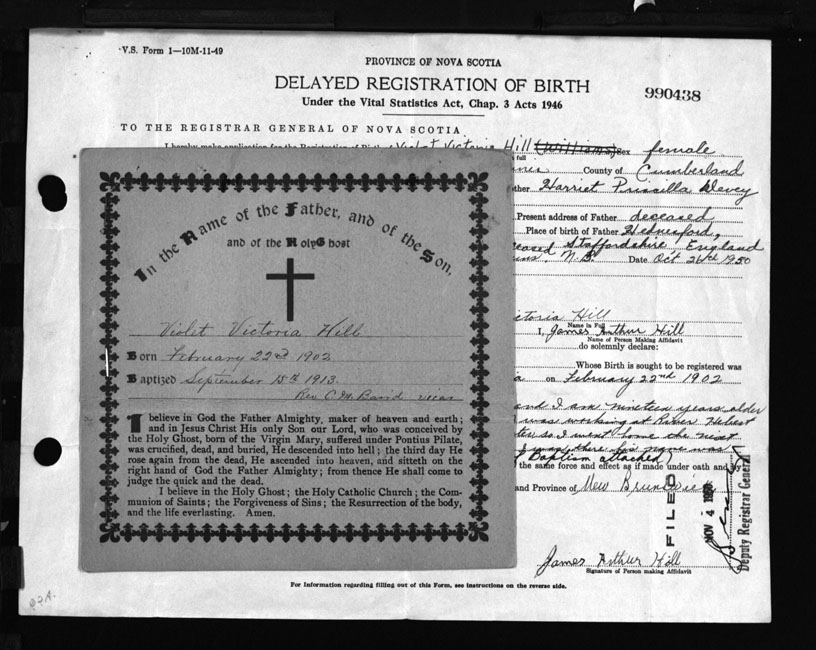 V.S. Form 1—10M-11-49
PROVINCE OF NOVA SCOTIA
DELAYED REGISTRATION OF BIRTH
990438
Under the Vital Statistics Act, Chap. 3 Acts 1946
TO THE REGISTRAR GENERAL OF NOVA SCOTIA
I hereby make application for the Registration of Violet Victoria Hill (Williams) Sex female
full
County of Cumberland
Harriet Priscilla Devey
Present address of Father deceased
Place of birth of Father Hednesford,
Staffordshire England
N.B. Date Oct 26th 1950
In the Name of the Father, and of the Son,
and of the Holy Ghost
Violet Victoria Hill
Born February 22nd 1902
Baptized September 15th 1913.
Rev. C. M.
ictoria Hill
Name in Full
I, James Arthur Hill
Name of Person Making Affidavit
do solemnly declare:
Whose Birth is sought to be registered was
on February 22nd 1902
and I am nineteen years older
was working at River Hebert
so I went home the next
Baptism attached)
the same force and effect as if made under oath and by
and Province of New Brunswick
I believe in God the Father Almighty, maker of heaven and earth;
and in Jesus Christ His only Son our Lord, who was conceived by
the Holy Ghost, born of the Virgin Mary, suffered under Pontius Pilate,
was crucified, dead, and buried, He descended into hell; the third day He
rose again from the dead, He ascended into heaven, and sitteth on the
right hand of God the Father Almighty; from thence He shall come to
judge the quick and the dead.
I believe in the Holy Ghost; the Holy Catholic Church; the Com-
munion of Saints; the Forgiveness of Sins; the Resurrection of the body,
and the life everlasting. Amen.
FILED
NOV 4
Deputy Registrar General
James Arthur Hill
Signature of Person making Affidavit
For Information regarding filling out of this Form, see instructions on the reverse side.